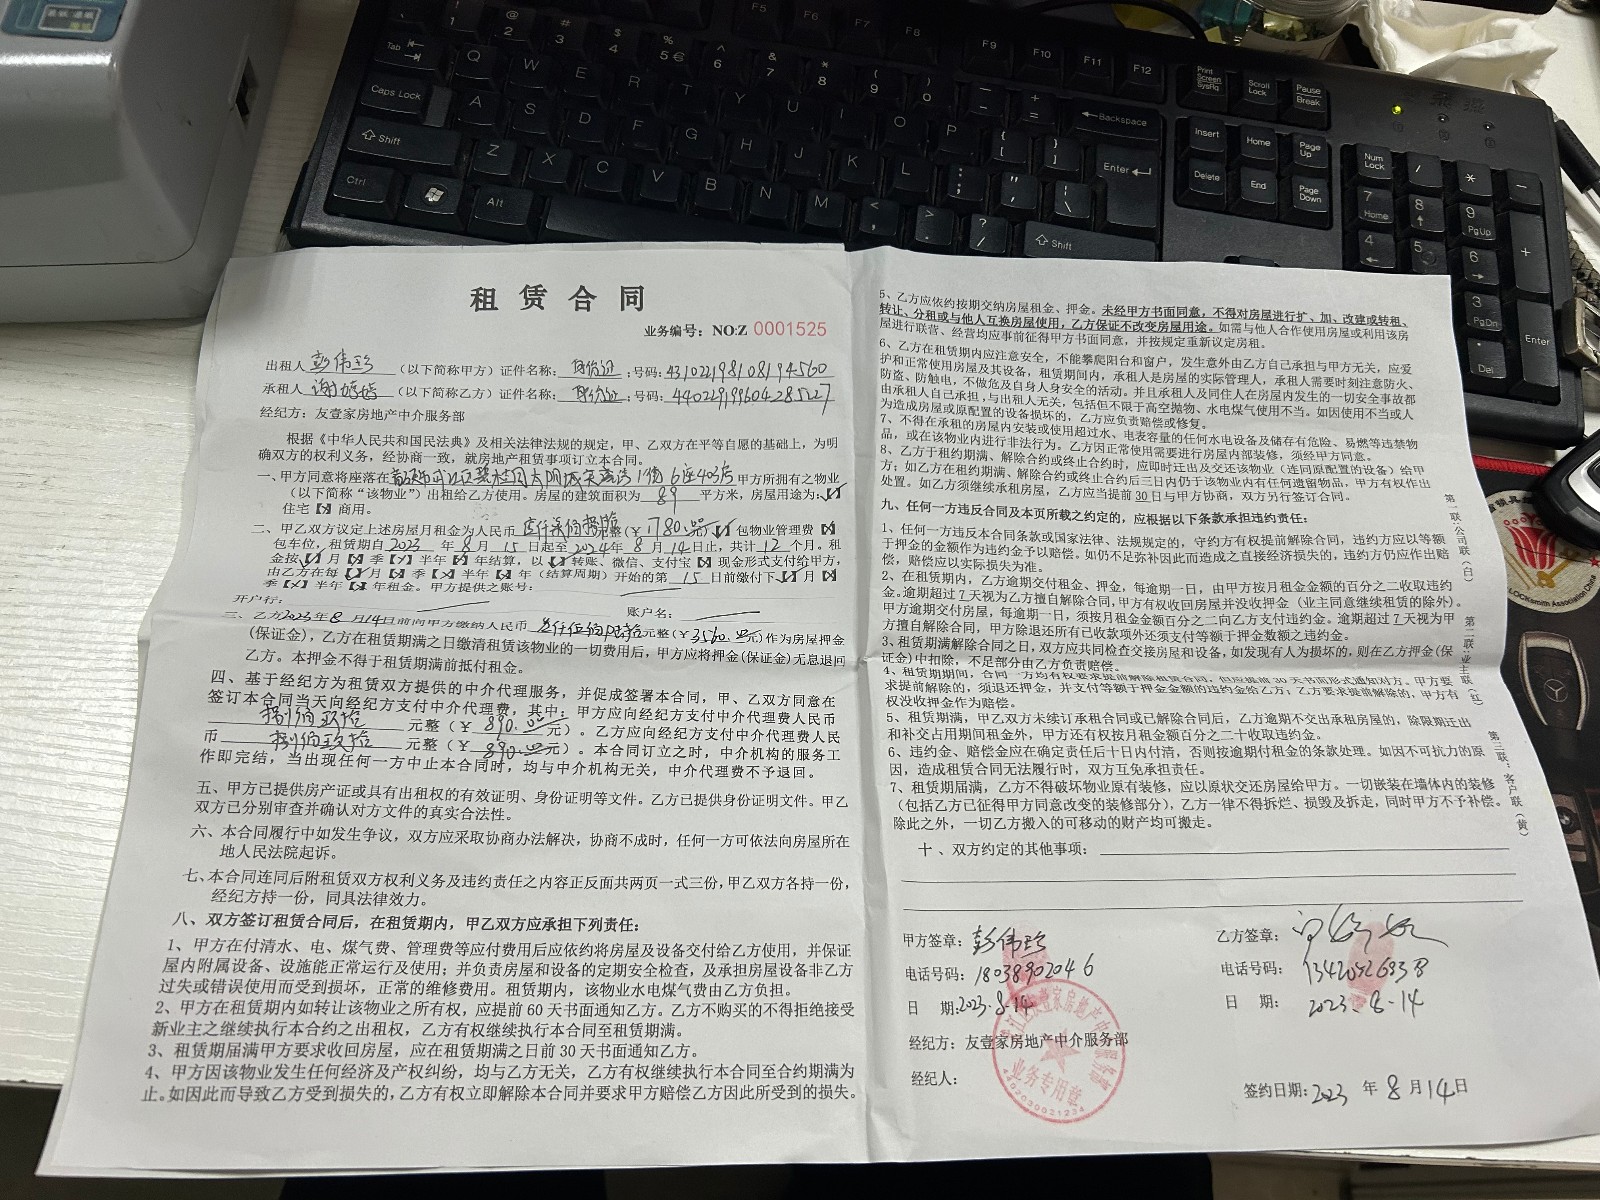 租赁合同
业务编号：NO:Z 0001525
出租人 彭伟珍 （以下简称甲方）证件名称： 身份证 ;号码: 431022198108194560
承租人 （以下简称乙方）证件名称： 身份证 ;号码:
经纪方：友壹家房地产中介服务部
根据《中华人民共和国民法典》及相关法律法规的规定，甲、乙双方在平等自愿的基础上，为明
确双方的权利义务，经协商一致，就房地产租赁事项订立本合同。
一、甲方同意将座落在 6座403房 甲方所拥有之物业
（以下简称“该物业”）出租给乙方使用。房屋的建筑面积为 89 平方米，房屋用途为:【✓】
住宅【×】商用。
二、甲乙双方议定上述房屋月租金为人民币 壹仟柒佰捌拾 元整(￥ 1780.00 元)【✓】包物业管理费【×】
包车位，租赁期自 2023 年 8 月 15 日起至 2024 年 8 月 14 日止，共计 12 个月。租
金按【✓】月【×】季【×】半年【×】年结算，以【✓】转账、微信、支付宝【×】现金形式支付给甲方，
由乙方在每【✓】月【×】季【×】半年【×】年（结算周期）开始的第 15 日前缴付下【✓】月【×】
季【×】半年【×】年租金。甲方提供之账号:
开户行: 账户名:
三、乙方2023年8月14日前向甲方缴纳人民币 叁仟伍佰陆拾 元整(￥3560.00元)作为房屋押金
(保证金)，乙方在租赁期满之日缴清租赁该物业的一切费用后，甲方应将押金(保证金)无息退回
乙方。本押金不得于租赁期满前抵付租金。
四、基于经纪方为租赁双方提供的中介代理服务，并促成签署本合同，甲、乙双方同意在
签订本合同当天向经纪方支付中介代理费，其中：甲方应向经纪方支付中介代理费人民币
捌佰玖拾 元整（￥ 890.00 元）。乙方应向经纪方支付中介代理费人民
币 捌佰玖拾 元整（￥ 890.00 元）。本合同订立之时，中介机构的服务工
作即完结，当出现任何一方中止本合同时，均与中介机构无关，中介代理费不予退回。
五、甲方已提供房产证或具有出租权的有效证明、身份证明等文件。乙方已提供身份证明文件。甲乙
双方已分别审查并确认对方文件的真实合法性。
六、本合同履行中如发生争议，双方应采取协商办法解决，协商不成时，任何一方可依法向房屋所在
地人民法院起诉。
七、本合同连同后附租赁双方权利义务及违约责任之内容正反面共两页一式三份，甲乙双方各持一份，
经纪方持一份，同具法律效力。
八、双方签订租赁合同后，在租赁期内，甲乙双方应承担下列责任：
1、甲方在付清水、电、煤气费、管理费等应付费用后应依约将房屋及设备交付给乙方使用，并保证
屋内附属设备、设施能正常运行及使用；并负责房屋和设备的定期安全检查，及承担房屋设备非乙方
过失或错误使用而受到损坏，正常的维修费用。租赁期内，该物业水电煤气费由乙方负担。
2、甲方在租赁期内如转让该物业之所有权，应提前 60 天书面通知乙方。乙方不购买的不得拒绝接受
新业主之继续执行本合约之出租权，乙方有权继续执行本合同至租赁期满。
3、租赁期届满甲方要求收回房屋，应在租赁期满之日前 30 天书面通知乙方。
4、甲方因该物业发生任何经济及产权纠纷，均与乙方无关，乙方有权继续执行本合同至合约期满为
止。如因此而导致乙方受到损失的，乙方有权立即解除本合同并要求甲方赔偿乙方因此所受到的损失。
5、乙方应依约按期交纳房屋租金、押金。未经甲方书面同意，不得对房屋进行扩、加、改建或转租、
转让、分租或与他人互换房屋使用，乙方保证不改变房屋用途。如需与他人合作使用房屋或利用该房
屋进行联营、经营均应事前征得甲方书面同意，并按规定重新议定房租。
6、乙方在租赁期内应注意安全，不能攀爬阳台和窗户，发生意外由乙方自己承担与甲方无关，应爱
护和正常使用房屋及其设备，租赁期间内，承租人是房屋的实际管理人，承租人需要时刻注意防火、
防盗、防触电，不做危及自身人身安全的活动。并且承租人及同住人在房屋内发生的一切安全事故都
由承租人自己承担,与出租人无关,包括但不限于高空抛物、水电煤气使用不当。如因使用不当或人
为造成房屋或原配置的设备损坏的，乙方应负责赔偿或修复。
7、不得在承租的房屋内安装或使用超过水、电表容量的任何水电设备及储存有危险、易燃等违禁物
品，或在该物业内进行非法行为。乙方因正常使用需要进行房屋内部装修，须经甲方同意。
8、乙方于租约期满、解除合约或终止合约时，应即时迁出及交还该物业（连同原配置的设备）给甲
方；如乙方在租约期满、解除合约或终止合约后三日内仍于该物业内有任何遗留物品，甲方有权作出
处置。如乙方须继续承租房屋，乙方应当提前 30 日与甲方协商，双方另行签订合同。
九、任何一方违反合同及本页所载之约定的，应根据以下条款承担违约责任：
1、任何一方违反本合同条款或国家法律、法规规定的，守约方有权提前解除合同，违约方应以等额
于押金的金额作为违约金予以赔偿。如仍不足弥补因此而造成之直接经济损失的，违约方仍应作出赔
偿，赔偿应以实际损失为准。
2、在租赁期内，乙方逾期交付租金、押金，每逾期一日，由甲方按月租金金额的百分之二收取违约
金。逾期超过 7 天视为乙方擅自解除合同,甲方有权收回房屋并没收押金（业主同意继续租赁的除外）。
甲方逾期交付房屋，每逾期一日，须按月租金金额百分之二向乙方支付违约金。逾期超过 7 天视为甲
方擅自解除合同，甲方除退还所有已收款项外还须支付等额于押金数额之违约金。
3、租赁期满解除合同之日，双方应共同检查交接房屋和设备，如发现有人为损坏的，则在乙方押金(保
证金)中扣除，不足部分由乙方负责赔偿。
4、租赁期期间，合同一方均有权要求提前解除租赁合同，但应提前 30 天书面形式通知对方。甲方要
求提前解除的，须退还押金，并支付等额于押金金额的违约金给乙方；乙方要求提前解除的，甲方有
权没收押金作为赔偿。
5、租赁期满，甲乙双方未续订承租合同或已解除合同后，乙方逾期不交出承租房屋的，除限期迁出
和补交占用期间租金外，甲方还有权按月租金额百分之二十收取违约金。
6、违约金、赔偿金应在确定责任后十日内付清，否则按逾期付租金的条款处理。如因不可抗力的原
因，造成租赁合同无法履行时，双方互免承担责任。
7、租赁期届满，乙方不得破坏物业原有装修，应以原状交还房屋给甲方。一切嵌装在墙体内的装修
（包括乙方已征得甲方同意改变的装修部分），乙方一律不得拆烂、损毁及拆走，同时甲方不予补偿。
除此之外，一切乙方搬入的可移动的财产均可搬走。
十 、双方约定的其他事项：
第一联：公司联（白）
第二联：业主联（红）
第三联：客户联（黄）
甲方签章: 彭伟珍
电话号码: 18038902046
日 期: 2023.8.14
经纪方: 友壹家房地产中介服务部
经纪人:
乙方签章:
电话号码:
日 期: 2023.8.14
签约日期: 2023 年 8 月 14 日
业务专用章